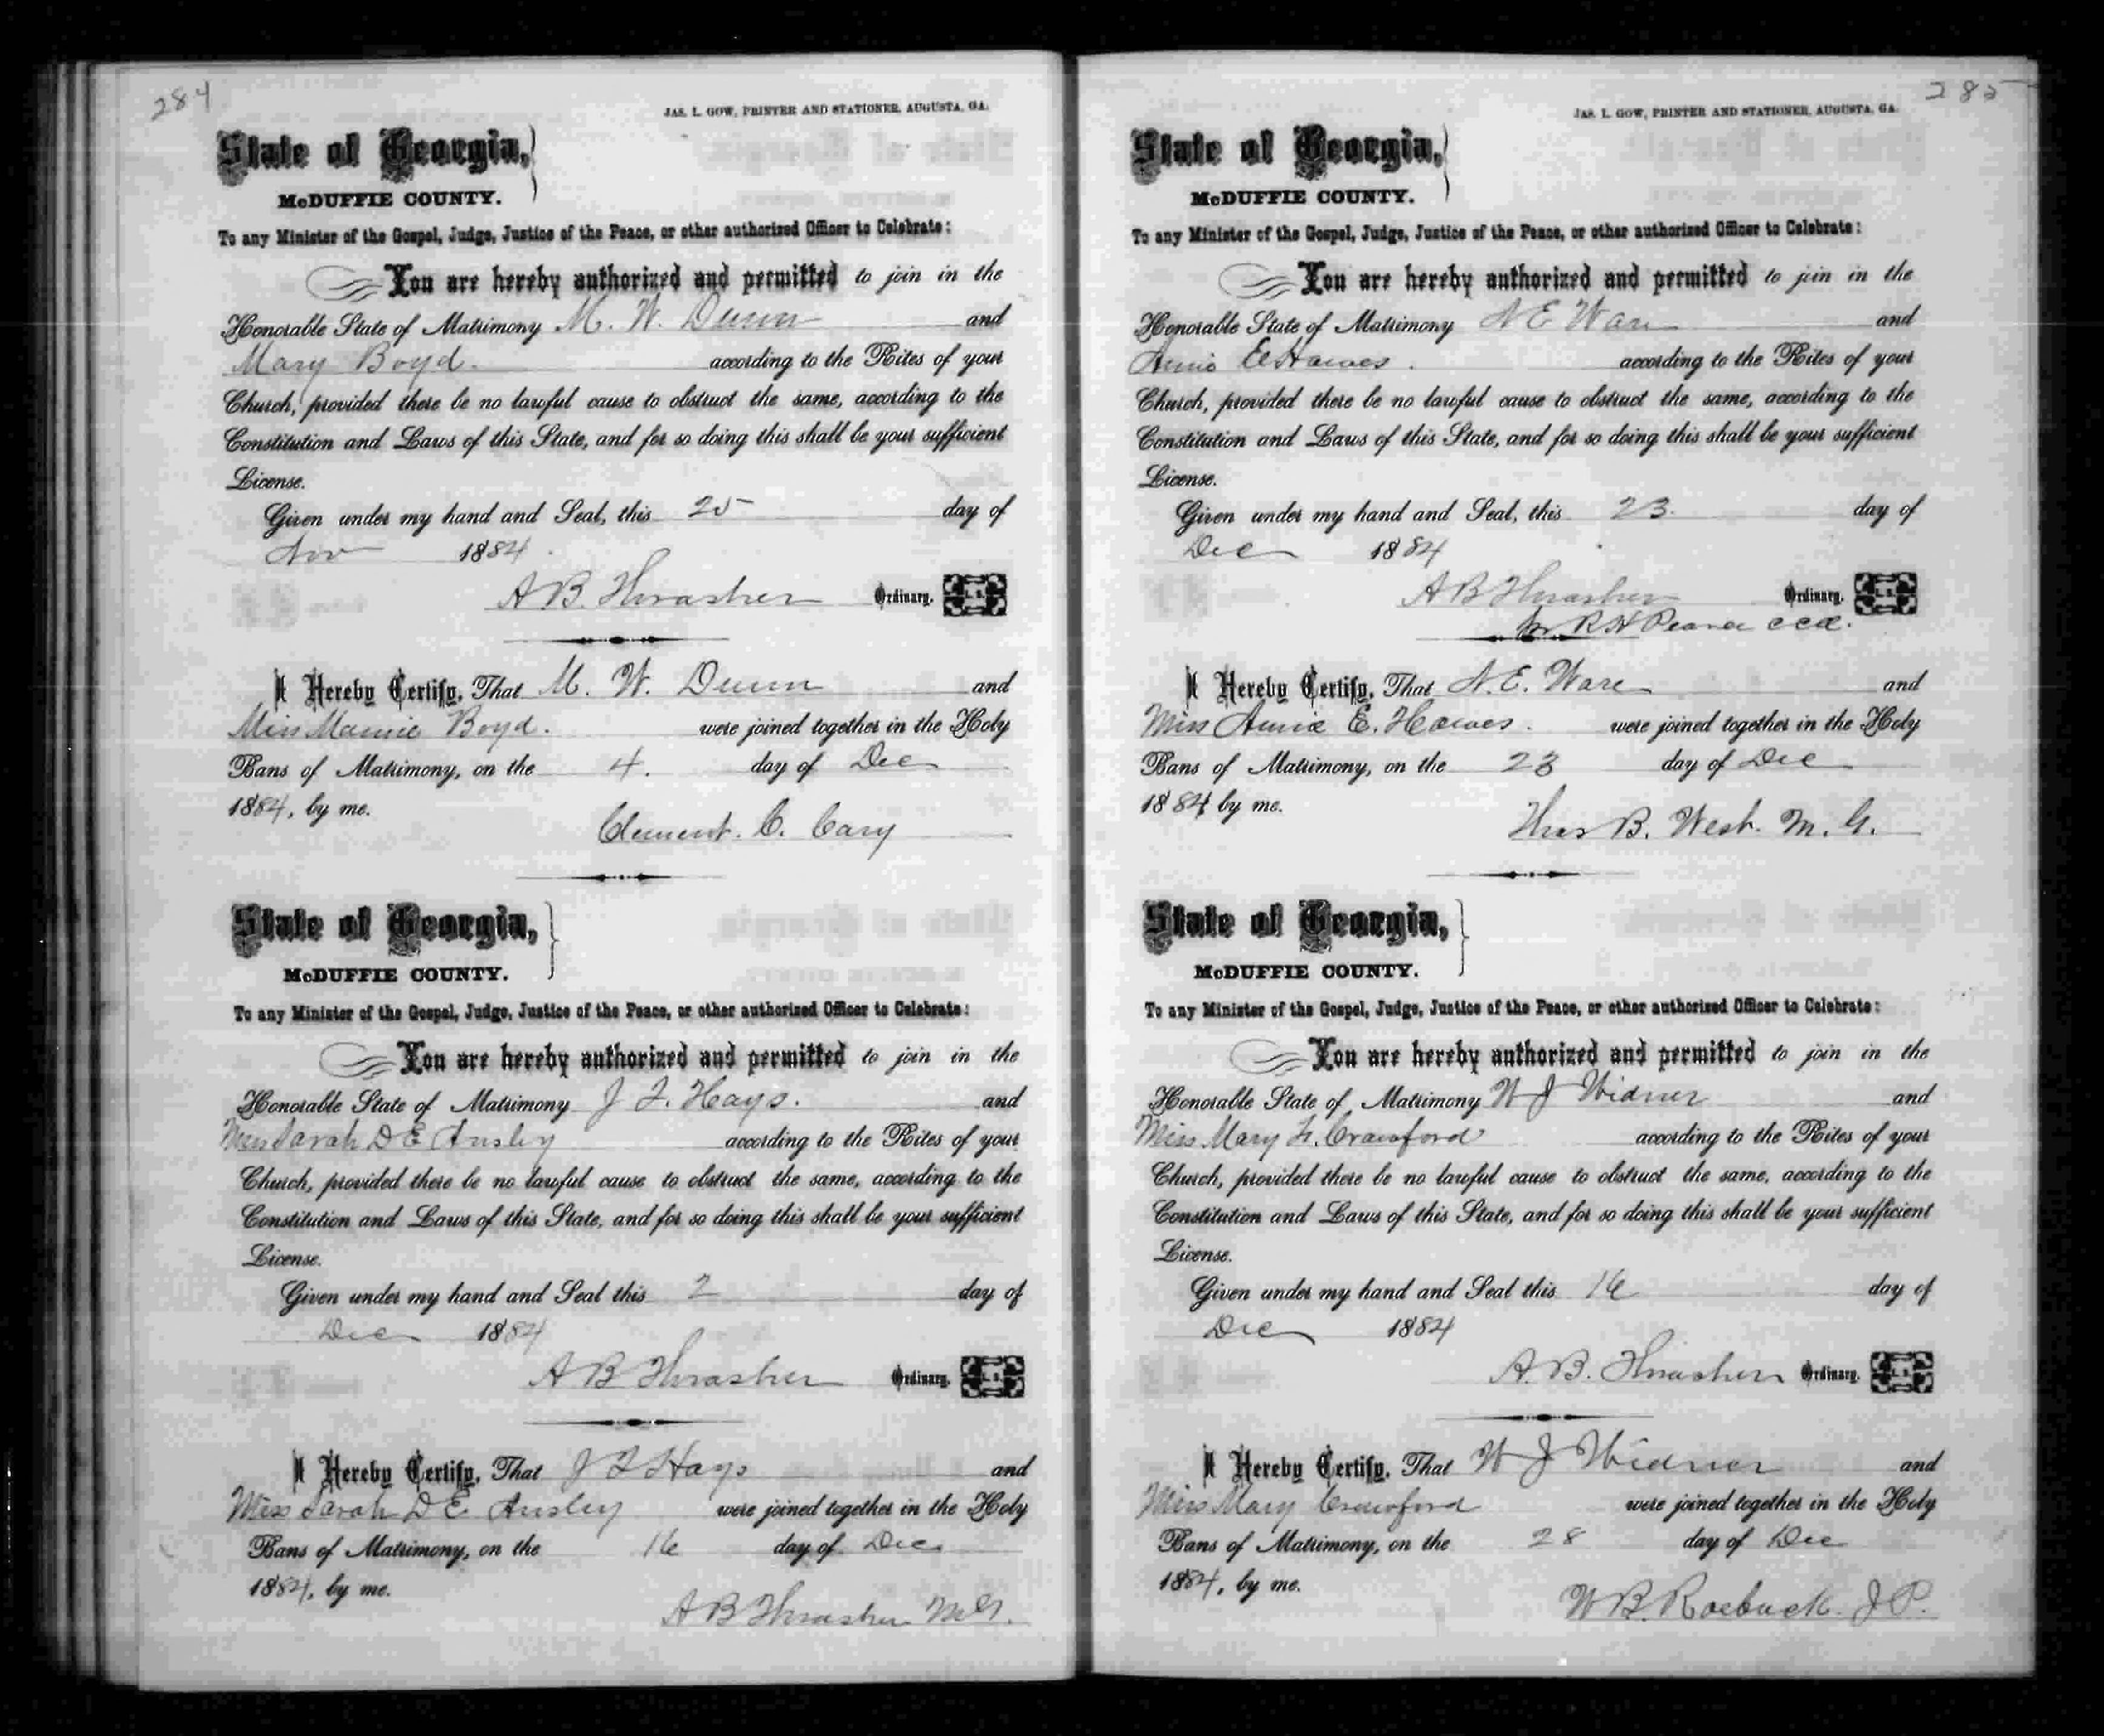 284
JAS. L. GOW, PRINTER AND STATIONER, AUGUSTA, GA.
State of Georgia,
McDUFFIE COUNTY.
To any Minister of the Gospel, Judge, Justice of the Peace, or other authorized Officer to Celebrate:
You are hereby authorized and permitted to join in the
Honorable State of Matrimony M. W. Dunn and
Mary Boyd. according to the Rites of your
Church, provided there be no lawful cause to obstruct the same, according to the
Constitution and Laws of this State, and for so doing this shall be your sufficient
License.
Given under my hand and Seal, this 25 day of
Nov 1884.
A B. Thrasher Ordinary. L. S.
I Hereby Certify, That M. W. Dunn and
Miss Mamie Boyd. were joined together in the Holy
Bans of Matrimony, on the 4. day of Dec
1884, by me.
Clement. C. Cary
State of Georgia,
McDUFFIE COUNTY.
To any Minister of the Gospel, Judge, Justice of the Peace, or other authorized Officer to Celebrate:
You are hereby authorized and permitted to join in the
Honorable State of Matrimony J. F. Hays. and
Miss Sarah D E Ansley according to the Rites of your
Church, provided there be no lawful cause to obstruct the same, according to the
Constitution and Laws of this State, and for so doing this shall be your sufficient
License.
Given under my hand and Seal this 2 day of
Dec 1884
A B Thrasher Ordinary. L. S.
I Hereby Certify, That J F Hays and
Miss Sarah D E Ansley were joined together in the Holy
Bans of Matrimony, on the 16 day of Dec.
1884, by me.
A B Thrasher M G.
285
JAS. L. GOW, PRINTER AND STATIONER, AUGUSTA, GA.
State of Georgia,
McDUFFIE COUNTY.
To any Minister of the Gospel, Judge, Justice of the Peace, or other authorized Officer to Celebrate:
You are hereby authorized and permitted to join in the
Honorable State of Matrimony N E Ware and
Annie E Hawes. according to the Rites of your
Church, provided there be no lawful cause to obstruct the same, according to the
Constitution and Laws of this State, and for so doing this shall be your sufficient
License.
Given under my hand and Seal, this 23. day of
Dec 1884
A B Thrasher Ordinary. L. S.
R H Pearce
I Hereby Certify, That N. E. Ware and
Miss Annie E. Hawes. were joined together in the Holy
Bans of Matrimony, on the 23 day of Dec
1884, by me.
Thos B. West. M. G.
State of Georgia,
McDUFFIE COUNTY.
To any Minister of the Gospel, Judge, Justice of the Peace, or other authorized Officer to Celebrate:
You are hereby authorized and permitted to join in the
Honorable State of Matrimony W J Widner and
Miss Mary F. Crawford according to the Rites of your
Church, provided there be no lawful cause to obstruct the same, according to the
Constitution and Laws of this State, and for so doing this shall be your sufficient
License.
Given under my hand and Seal this 16 day of
Dec 1884
A. B. Thrasher Ordinary. L. S.
I Hereby Certify, That W J Widner and
Miss Mary Crawford were joined together in the Holy
Bans of Matrimony, on the 28 day of Dec
1884, by me.
W B. Roebuck. J P.